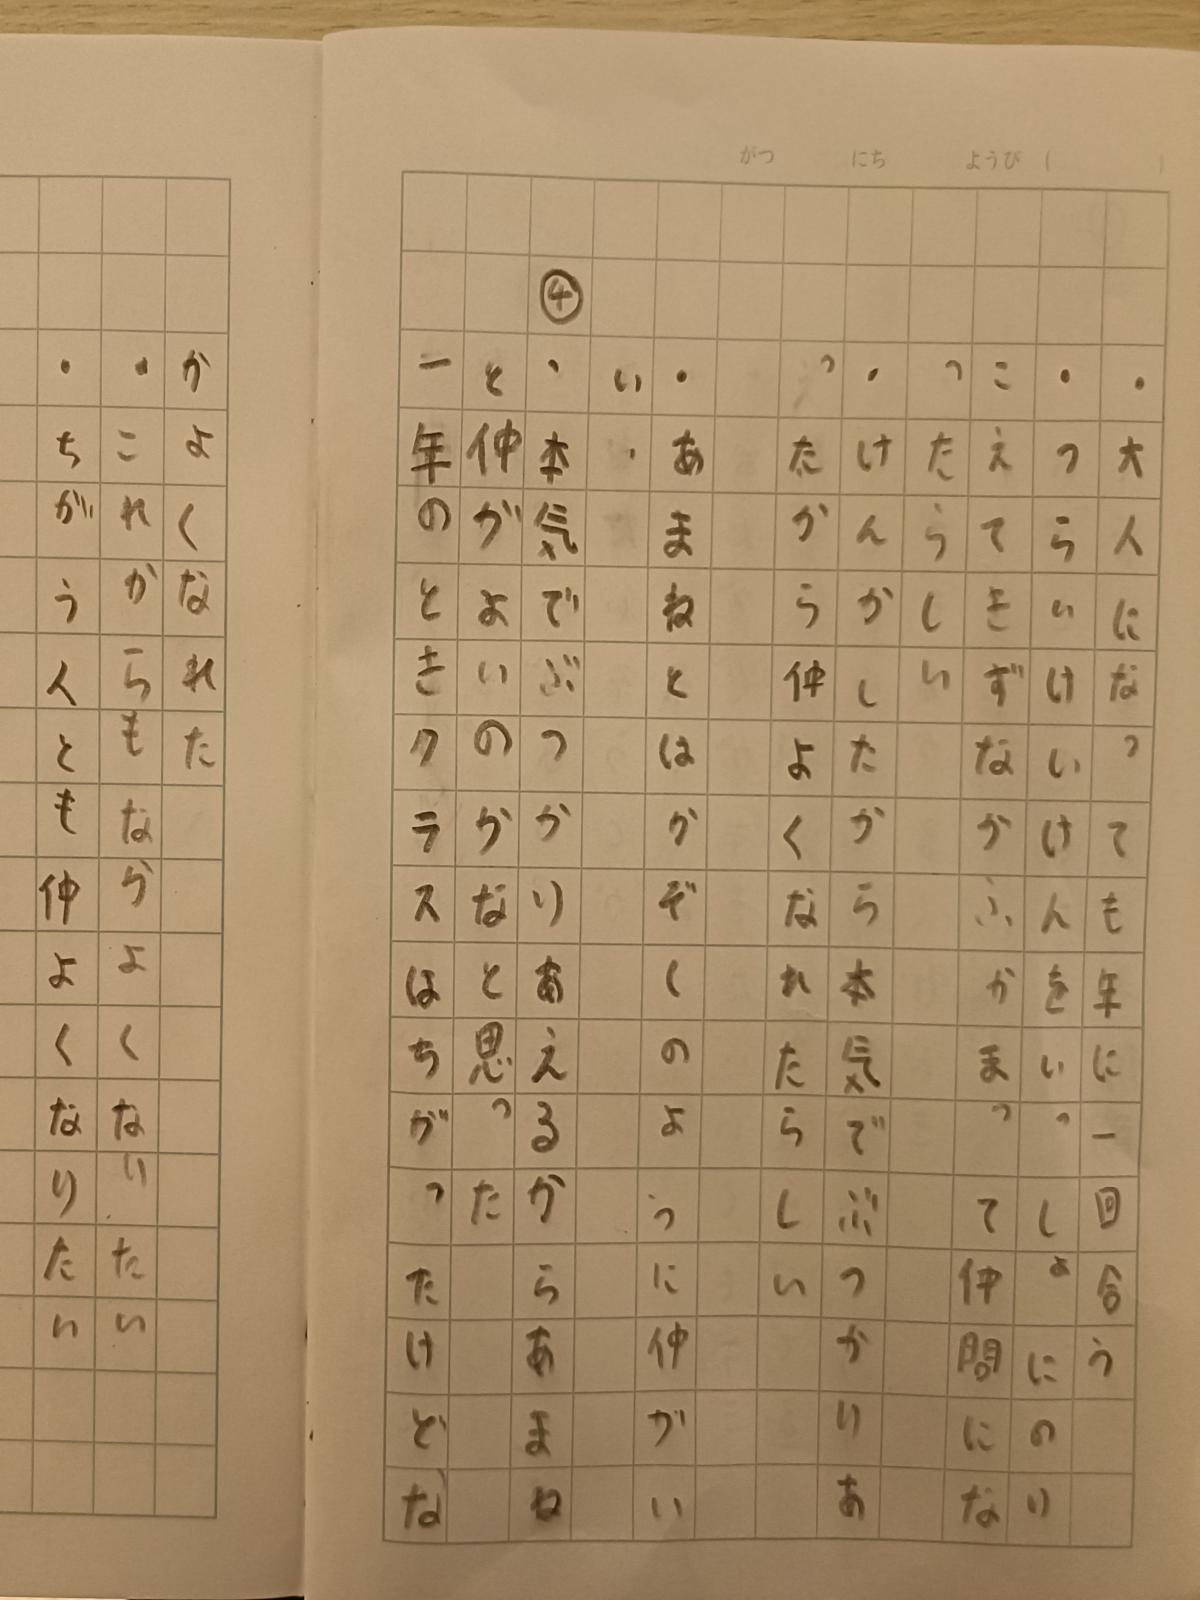 がつ　にち　ようび（　）
・大人になっても年に一回合う
・つらいけいけんをいっしょにのり
こえてきずなかふかまって仲間にな
ったらしい
・けんかしたから本気でぶつかりあ
ったから仲よくなれたらしい
・あまねとはかぞくのように仲がい
い、
④、本気でぶつかりあえるからあまね
と仲がよいのかなと思った
一年のときクラスはちがったけどな
かよくなれた
・これからもなかよくなりたい
・ちがう人とも仲よくなりたい